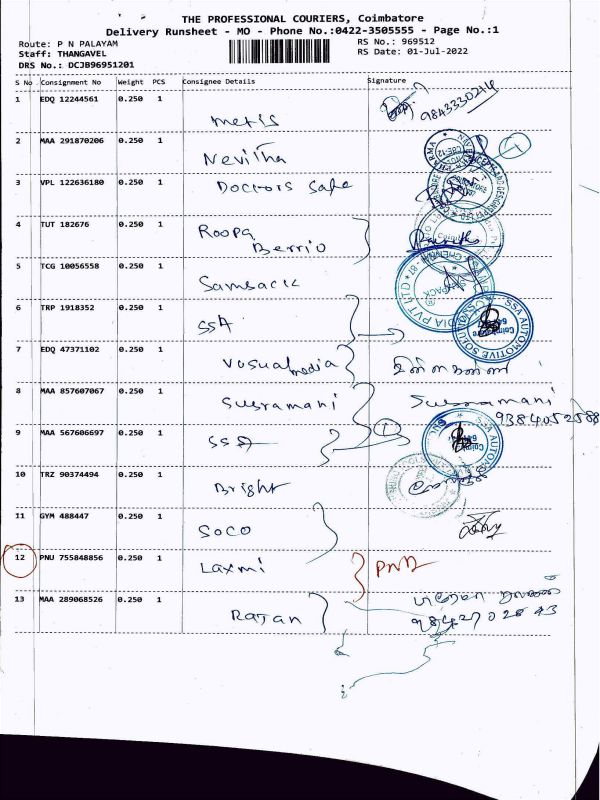 THE PROFESSIONAL COURIERS, Coimbatore
Delivery Runsheet - MO - Phone No.:0422-3505555 - Page No.:1
Route: P N PALAYAM
RS No.: 969512
Staff: THANGAVEL
RS Date: 01-Jul-2022
DRS No.: DCJB96951201
S No Consignment No Weight PCS Consignee Details Signature
1 EDQ 12244561 0.250 1 metis
2 MAA 291870206 0.250 1 Nevitha
3 VPL 122636180 0.250 1 Doctors Safe
4 TUT 182676 0.250 1 Roopa Berrio
5 TCG 10056558 0.250 1 Samsack
6 TRP 1918352 0.250 1 SSA
7 EDQ 47371102 0.250 1 Vosual media
8 MAA 857607067 0.250 1 Susramani Susramani
9384052588
9 MAA 567606697 0.250 1 SSA
10 TRZ 90374494 0.250 1 Bright
11 GYM 488447 0.250 1 SOCO
12 PNU 755848856 0.250 1 Laxmi
13 MAA 289068526 0.250 1 Ratan
SSA AUTOMOTIVE SOLUTIONS